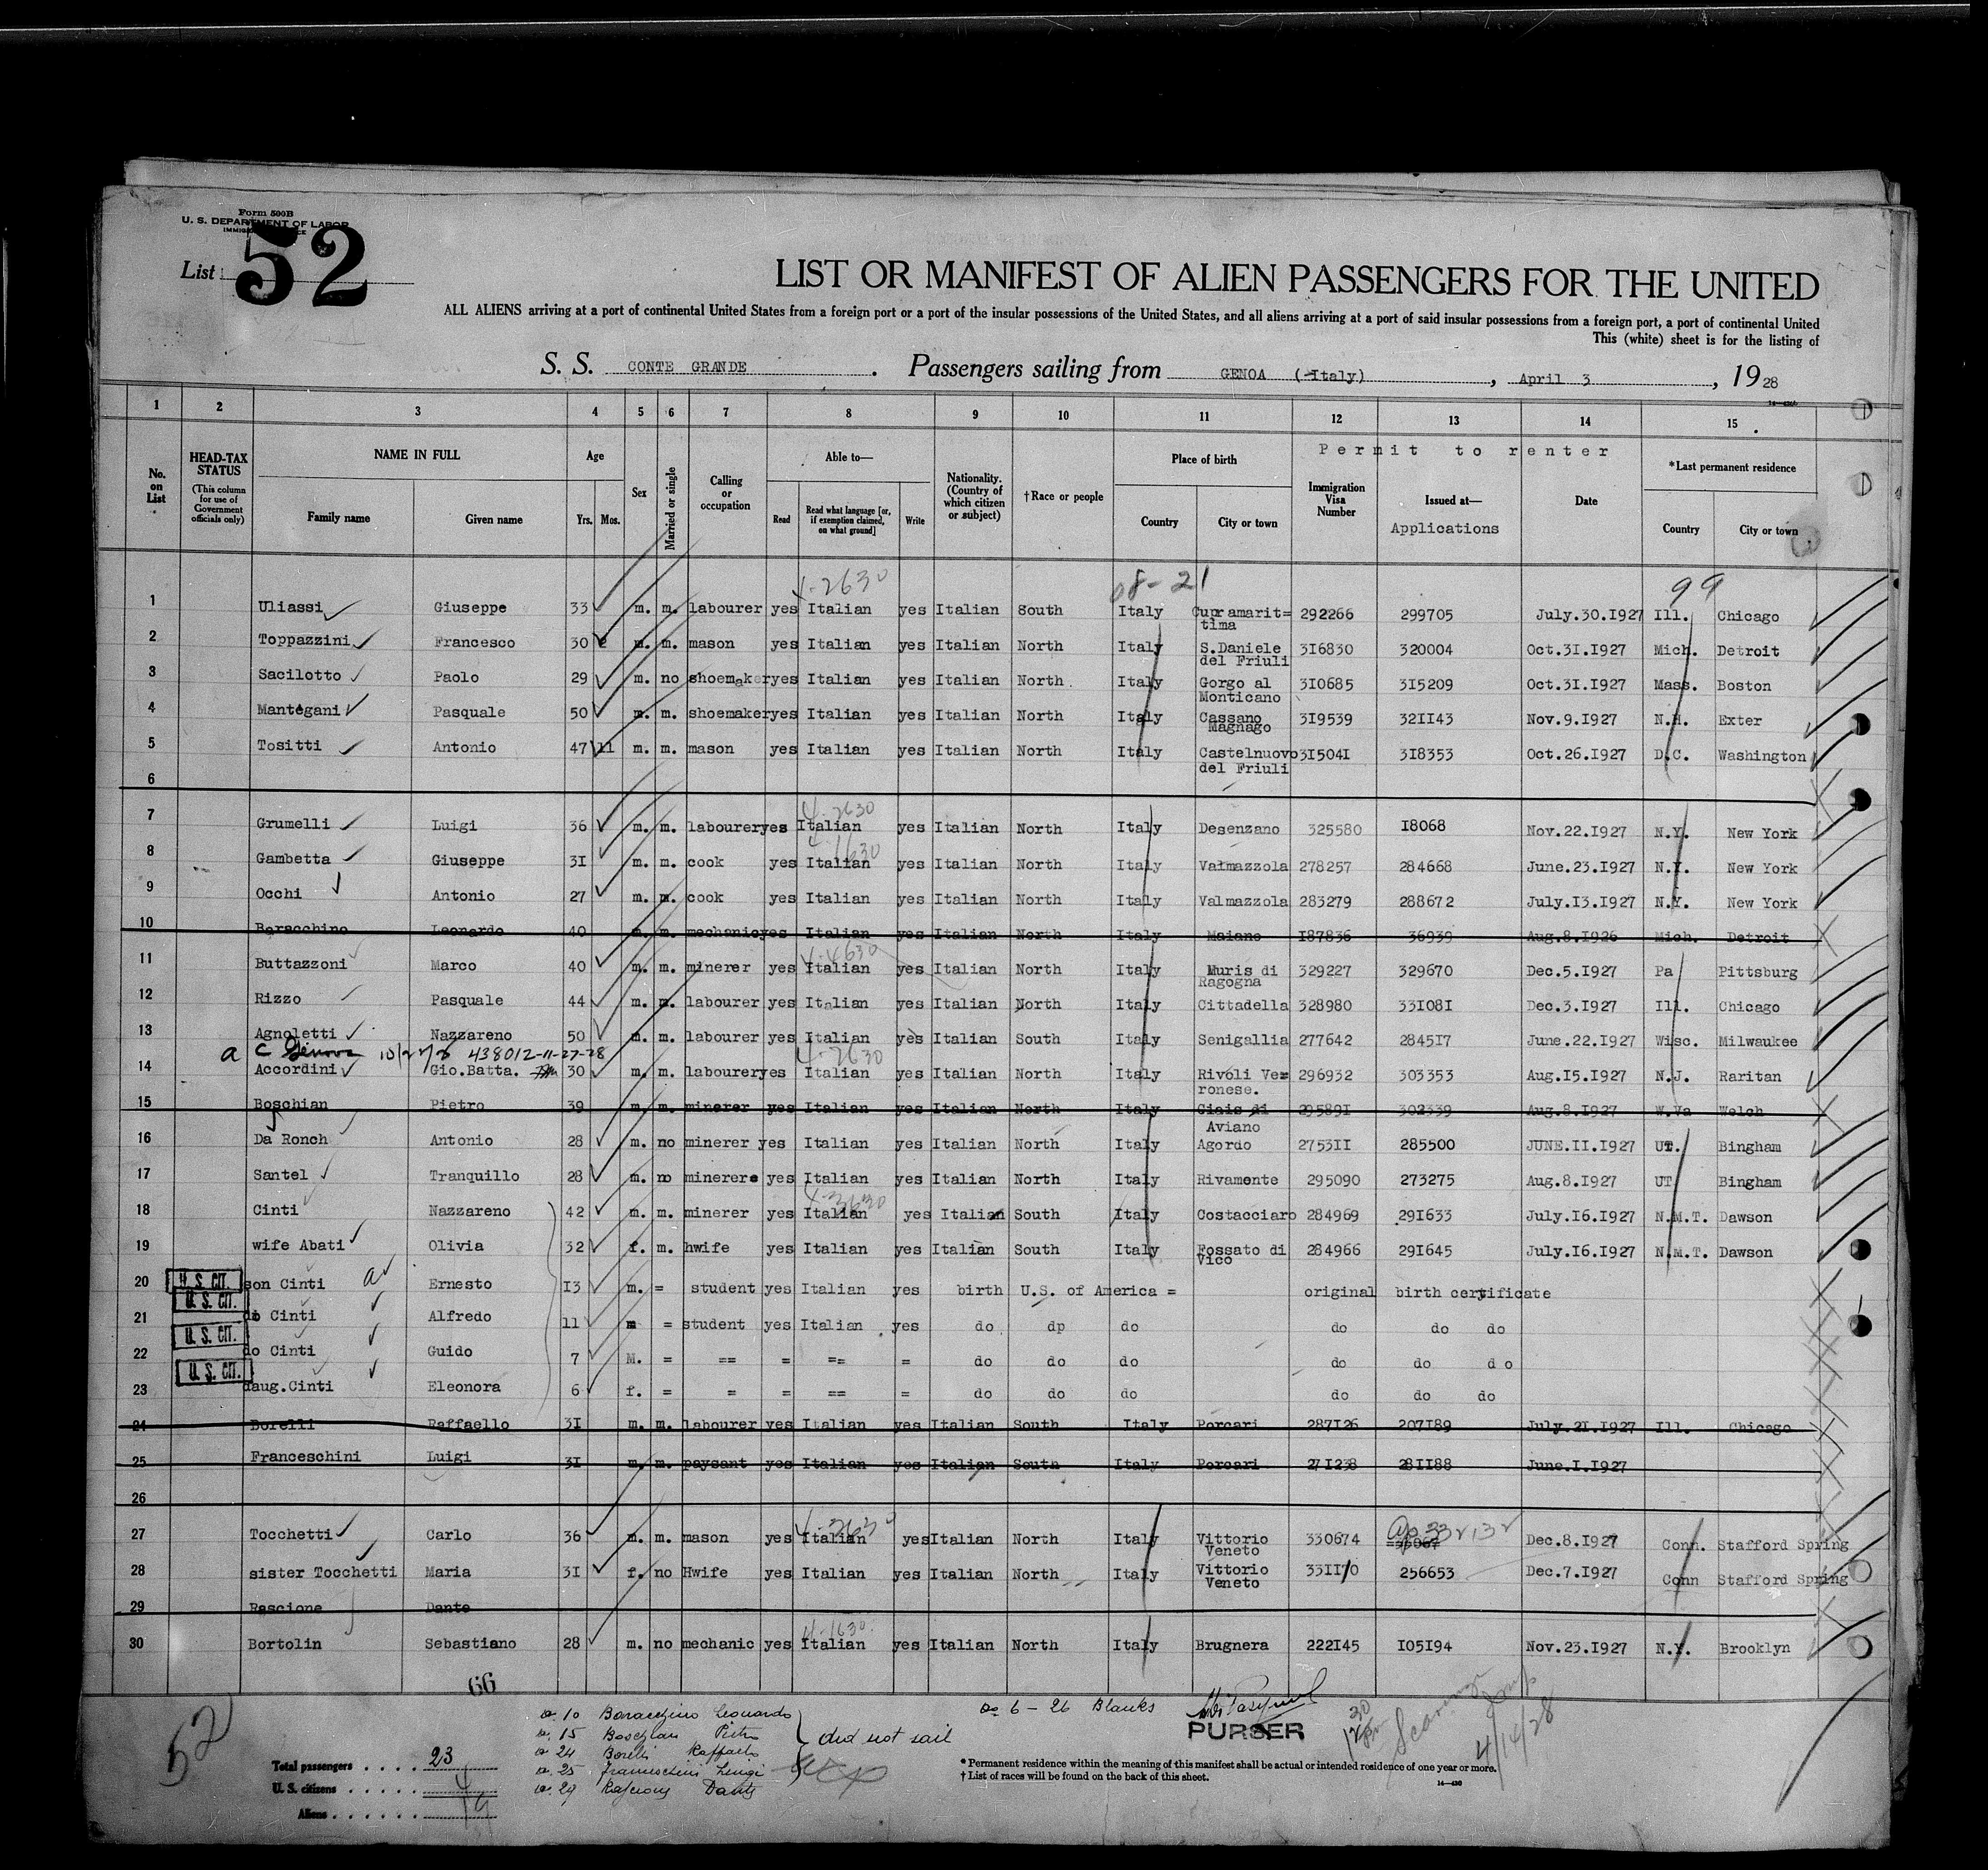 Form 500B
U. S. DEPARTMENT OF LABOR
List 52
LIST OR MANIFEST OF ALIEN PASSENGERS FOR THE UNITED
ALL ALIENS arriving at a port of continental United States from a foreign port or a port of the insular possessions of the United States, and all aliens arriving at a port of said insular possessions from a foreign port, a port of continental United
This (white) sheet is for the listing of
S. S. CONTE GRANDE. Passengers sailing from GENOA (Italy), April 3, 1928
1 2 3 4 5 6 7 8 9 10 11 12 13 14 15
No. on List
HEAD-TAX STATUS (This column for use of Government officials only)
NAME IN FULL Family name Given name
Age Yrs. Mos.
Sex
Married or single
Calling or occupation
Able to— Read Read what language [or, if exemption claimed, on what ground] Write
Nationality. (Country of which citizen or subject)
†Race or people
Place of birth Country City or town
Permit to renter
Immigration Visa Number
Issued at— Applications
Date
*Last permanent residence Country City or town
4-2630 08-21 99
1 Uliassi Giuseppe 33 m. m. labourer yes Italian yes Italian South Italy Cupramarit=tima 292266 299705 July.30.1927 Ill. Chicago
2 Toppazzini Francesco 30 m. m. mason yes Italian yes Italian North Italy S.Daniele del Friuli 316830 320004 Oct.31.1927 Mich. Detroit
3 Sacilotto Paolo 29 m. no shoemaker yes Italian yes Italian North Italy Gorgo al Monticano 310685 315209 Oct.31.1927 Mass. Boston
4 Mantegani Pasquale 50 m. m. shoemaker yes Italian yes Italian North Italy Cassano Magnago 319539 321143 Nov.9.1927 N.H. Exter
5 Tositti Antonio 47 11 m. m. mason yes Italian yes Italian North Italy Castelnuovo del Friuli 315041 318353 Oct.26.1927 D.C. Washington
6
4-2630
7 Grumelli Luigi 36 m. m. labourer yes Italian yes Italian North Italy Desenzano 325580 18068 Nov.22.1927 N.Y. New York
4-1630
8 Gambetta Giuseppe 31 m. m. cook yes Italian yes Italian North Italy Valmazzola 278257 284668 June.23.1927 N.Y. New York
9 Occhi Antonio 27 m. m. cook yes Italian yes Italian North Italy Valmazzola 283279 288672 July.13.1927 N.Y. New York
10 Baracchino Leonardo 40 m. m. mechanic yes Italian yes Italian North Italy Maiano 187836 36939 Aug.8.1926 Mich. Detroit
4-4630
11 Buttazzoni Marco 40 m. m. minerer yes Italian yes Italian North Italy Muris di Ragogna 329227 329670 Dec.5.1927 Pa Pittsburg
12 Rizzo Pasquale 44 m. m. labourer yes Italian yes Italian North Italy Cittadella 328980 331081 Dec.3.1927 Ill. Chicago
13 Agnoletti Nazzareno 50 m. m. labourer yes Italian yes Italian South Italy Senigallia 277642 284517 June.22.1927 Wisc. Milwaukee
a C Genova 438012-11-27-28 4-2630
14 Accordini Gio.Batta. 30 m. m. labourer yes Italian yes Italian North Italy Rivoli Ve=ronese. 296932 303353 Aug.15.1927 N.J. Raritan
15 Boschian Pietro 39 m. m. minerer yes Italian yes Italian North Italy Ciais di Aviano 295891 302339 Aug.8.1927 W.Va Welch
16 Da Ronch Antonio 28 m. no minerer yes Italian yes Italian North Italy Agordo 275311 285500 JUNE.11.1927 UT. Bingham
17 Santel Tranquillo 28 m. no minerere yes Italian yes Italian North Italy Rivamonte 295090 273275 Aug.8.1927 UT Bingham
4-3630
18 Cinti Nazzareno 42 m. m. minerer yes Italian yes Italian South Italy Costacciaro 284969 291633 July.16.1927 N.M.T. Dawson
19 wife Abati Olivia 32 f. m. hwife yes Italian yes Italian South Italy Fossato di Vico 284966 291645 July.16.1927 N.M.T. Dawson
20 U. S. CIT. son Cinti Ernesto 13 m. = student yes Italian yes birth U.S. of America = original birth certificate
21 U. S. CIT. do Cinti Alfredo 11 m = student yes Italian yes do dp do do do do
22 U. S. CIT. do Cinti Guido 7 M. = == = == = do do do do do do
23 U. S. CIT. daug.Cinti Eleonora 6 f. = = = == = do do do do do do
24 Borelli Raffaello 31 m. m. labourer yes Italian yes Italian South Italy Porcari 287126 207189 July.21.1927 Ill. Chicago
25 Franceschini Luigi 31 m. m. paysant yes Italian yes Italian South Italy Porcari 271238 281188 June.1.1927
26
27 Tocchetti Carlo 36 m. m. mason yes Italian yes Italian North Italy Vittorio Veneto 330674 Dec.8.1927 Conn. Stafford Spring
28 sister Tocchetti Maria 31 f. no Hwife yes Italian yes Italian North Italy Vittorio Veneto 331170 256653 Dec.7.1927 Conn Stafford Spring
29 Rascione Dante
4-1630.
30 Bortolin Sebastiano 28 m. no mechanic yes Italian yes Italian North Italy Brugnera 222145 105194 Nov.23.1927 N.Y. Brooklyn
66
52
10 Baracchino Leonardo
15 Boschian Pietro
24 Borelli Raffaello
25 Franceschini Luigi
29 Rascione Dante
did not sail
6 - 26 Blanks
PURSER
4/14/28
Total passengers . . . . 23
U. S. citizens . . . . . . 4
Aliens . . . . . . 19
* Permanent residence within the meaning of this manifest shall be actual or intended residence of one year or more.
† List of races will be found on the back of this sheet.
14—430